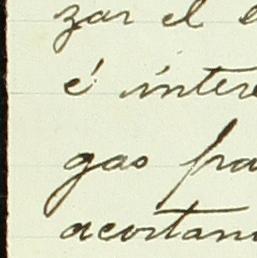 zar el e
é intere
gas fra
acortam